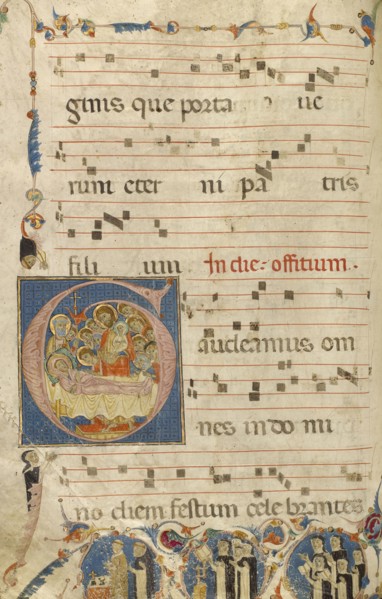 ginis que porta ue
runt eter ni pa tris
fili um In die offitium.
audeamus om
nes in do mi
no diem festum cele brantes